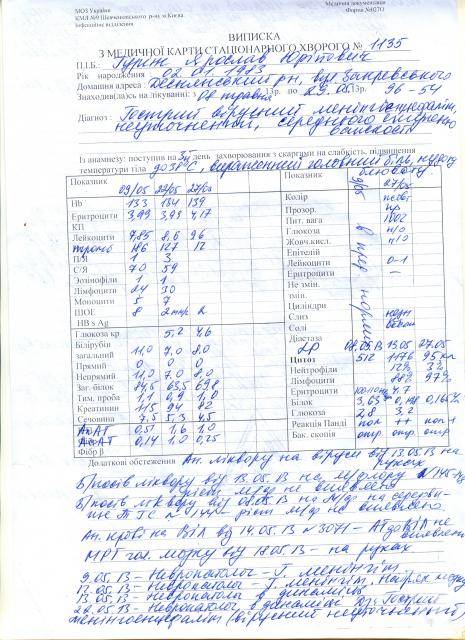 МОЗ України
КМЛ №9 Шевченковського р-ну м Києва
Інфекційне відділення
Медична документація
Форма №027О
ВИПИСКА
З МЕДИЧНОЇ КАРТИ СТАЦІОНАРНОГО ХВОРОГО № 1135
П.І.Б.: Ярослав
Рік народження 02.01.1983
Домашня адреса:
Знаходив(лась) на лікуванні: з 08 травня 13р. по 29.05.13р. 96-54
Діагноз: Гострий вірусний менінгоенцефаліт,
неуточнений, середнього ступеню
важкості
Із анамнезу: поступив на 3й день захворювання з скаргами на слабкість, підвищення
температури тіла до 38°С, виражений головний біль, нудоту
блювоту
Показник 09/05 22/05 27/05
Hb 133 134 139
Еритроцити 3,99 3,93 4,17
КП
Лейкоцити 7,85 8,6 9,6
тромб 186 127 12
П/Я 1 3
С/Я 70 59
Эозинофіли 1 1
Лімфоцити 24 30
Моноцити 5 7
ШОЕ 8 2
HB s Ag
Глюкоза кр 5,2 4,6
Білірубін
загальний 11,0 7,0 8,0
Прямий 0 0 0
Непрямий 11,0 7,0 8,0
Заг. білок 84,5 63,5 69,8
Тим. проба 1,1 0,9 1,0
Креатинин 115 94 82
Сечовина 7,5 5,3 4,5
АлАТ 0,51 1,6 1,0
АсАТ 0,14 1,0 0,25
Фібр β
Показник 9/05 27/05
Колір
Прозор. пр
Пит. вага 1002
Глюкоза н/о
Жовч.кисл. н/о
Епітелій
Лейкоцити 0-1
Еритроцити –
Не змін.
змін.
Циліндри
Слиз
Солі
Діастаза
в пред нормі
ЛР 08.05.13 13.05 27.05
Цитоз 512 1176 95 кл
Нейтрофіли 12% 3%
Лімфоцити 88% 97%
Еритроцити 4.7
Білок 3,63 0,165%
Глюкоза 2,8 3,2
Реакція Панді пол ++ пол+
Бак. сконія отр. отр. отр
Додаткові обстеження Ан. ліквору на віруси від 13.05.13 на
руках
Б/посів ліквору від 13.05.13 на м/флору
ріст м/ф не виявлено
Б/посів ліквору від 08.05.13 на м/ф
ріст м/ф не виявлено
Ан. крові на ВІЛ від 14.05.13 №3071 – АТ до ВІЛ не
виявлено
МРТ гол. мозку від 17.05.13 – на руках
9.05.13 – Невропатолог – Г. менінгіт
12.05.13 – Невропатолог – Г. менінгіт, набряк мозку
13.05.13 – Невропатолог в динаміці
22.05.13 – Невропатолог в динаміці Дз: Гострий
менінгоенцефаліт (вірусний неуточнений)